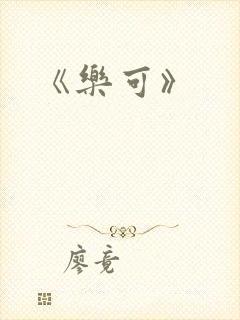 《樂可》
廖竟